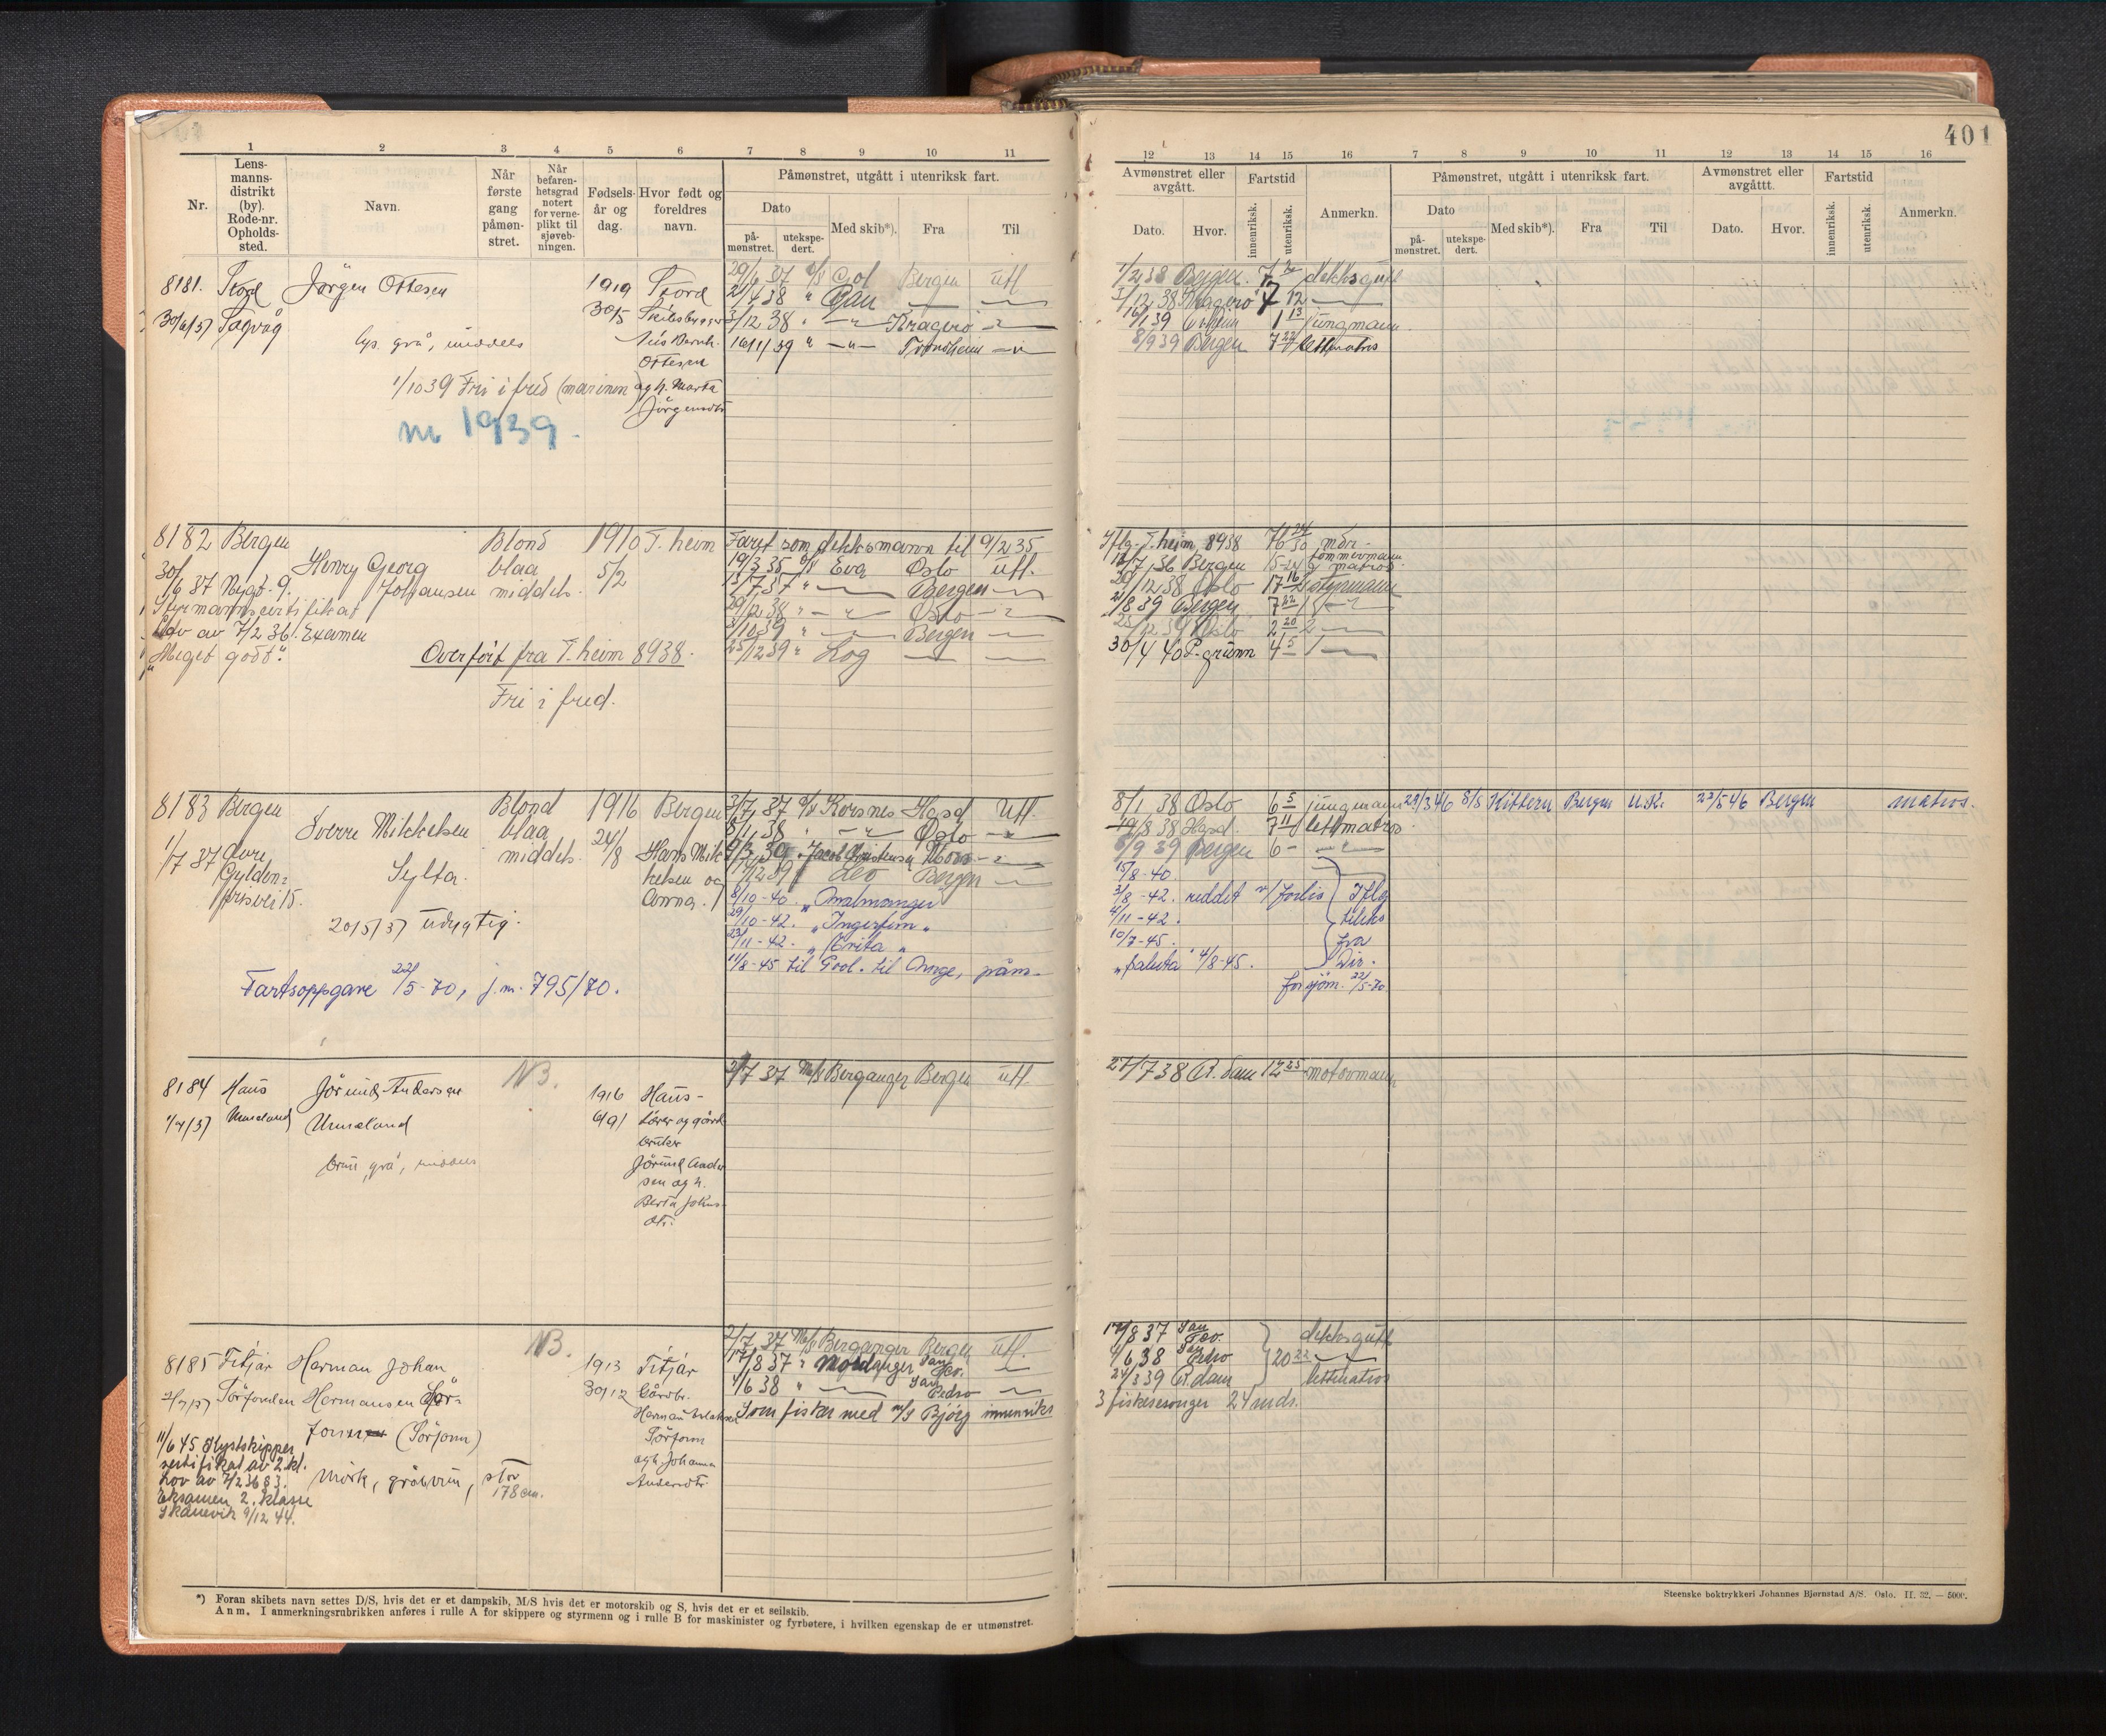 401
1 2 3 4 5 6 7 8 9 10 11
Nr.
Lens-
manns-
distrikt
(by).
Rode-nr.
Opholds-
sted.
Navn.
Når
første
gang
påmøn-
stret.
Når
befaren-
hetsgrad
notert
for verne-
plikt til
sjøveb-
ningen.
Fødsels-
år og
dag.
Hvor født og
foreldres
navn.
Påmønstret, utgått i utenriksk fart.
Dato
på-
mønstret.
utekspe-
dert.
Med skib*).
Fra
Til
12 13 14 15 16 7 8 9 10 11 12 13 14 15 16
Avmønstret eller
avgått.
Dato.
Hvor.
Fartstid
innenriksk.
utenriksk.
Anmerkn.
Påmønstret, utgått i utenriksk fart.
Dato
på-
mønstret.
utekspe-
dert.
Med skib*).
Fra
Til
Avmønstret eller
avgåttt.
Dato.
Hvor.
Fartstid
innenriksk.
utenriksk.
Anmerkn.
8181. Jørgen Ottesen 1919
30/6/37 Sagvåg 30/5
lys. grå, middels
Ottesen
1/10 39 Fri i fred (marinen) og h. Marta
Jørgensdtr
m 1939.
Bergen utl.
3/12 38 Kragerø
16/1/39 Trondheim
1/2 38 Bergen dekksgutt
3/12 38 Kragerø 12
jungmann
8/9 39 Bergen lettmatros
8182 Bergen Blond 1910 T. heim
30/6 37 Nygt. 9. Henry Georg blaa 5/2
Johansen middels.
Styrmannscertifikat
Lov av 7/2 36. Examen
"Meget godt".
Overført fra T. heim 8938.
Fri i fred.
Faret som dekksmann til 9/2 35
19/3 35 Eva Oslo utl.
13/7 37 Bergen
29/12 38 Oslo
3/10 39 Bergen
25/12 39 Log
Iflg. T. heim 8938 mdr.
tømmermann
7/36 Bergen matros.
29/12 38 Oslo 17 16 styrmann
8 39 Bergen 7 22
25/12 39 Oslo 2 20 2
30/4 40 P. grunn 4 5 1
8183 Bergen Blond 1916 Bergen
1/7 37 Øvre Sverre Mikkelsen blaa 24/8
Gylden- Sylta. middels. Hans Mik
prisvei 15. kelsen og
Anna.
20/5/37 udygtig.
Fartsoppgave 22/5-70, j.nr. 795/70.
3/7 37 Korsnes Hasd Utl.
8/1 38 Oslo
Jacob Christensen
Leo Bergen
8/10-40. " Malmanger
29/10-42. " Ingerfem "
23/11-42. " Erita "
11/8-45 til God. til Ange, påm.
8/1 38 Oslo 6 5 jungmann
19/8 38 Hasd. 7 11 lettmatros
5/9 39 Bergen 6 -
15/8-40.
3/8-42. reddet v/ forlis Iflg
4/11-42. teleks
10/7-45. fra
"paluta" 4/8-45. Dir.
for sjøm. 22/5-70
29/3 46 Hittern Bergen U.K. 23/5 46 Bergen matros.
8184 Haus Jørund Andersen NB. 1916 Haus-
1/7/37 Urmeland Urmeland 6/9 Lærer og gård
bruker
brun, grå, middels Jørund Ander
sen og h.
Berta Johns-
dtr.
2/7 37 M/S Berganger Bergen utl.
27/7 38 R. dam 12 25 motormann
8185 Fitjar Herman Johan NB. 1913 Fitjar
2/7/37 Tørfonden Hermansen Sør- 30/12 Gårdbr.
(Sørfonn)
Sørfonn
og h. Johanna
Andersdtr
11/6 45 Kystskipper
sertifikat av 2 kl.
Lov av 7/2 36 § 3.
Mørk, gråbrun, stor
178 cm.
Eksamen 2. klasse
Skånevik 9/12 44.
2/7 37 M/S Berganger Bergen Utl.
17/8 37 " Moldanger San Fco.
1/6 38 " San Pedro
Som fisker med m/S Bjørg innenriks
17/8 37 San Fco. dekksgutt
1/6 38 San Pedro 20 22
24/3 39 R. dam lettmatros
3 fiskesesonger 24 mdr.
*) Foran skibets navn settes D/S, hvis det er et dampskib, M/S hvis det er motorskib og S, hvis det er et seilskib.
Anm. I anmerkningsrubrikken anføres i rulle A for skippere og styrmenn og i rulle B for maskinister og fyrbøtere, i hvilken egenskap de er utmønstret.
Steenske boktrykkeri Johannes Bjørnstad A/S. Oslo. II. 32. — 5000.